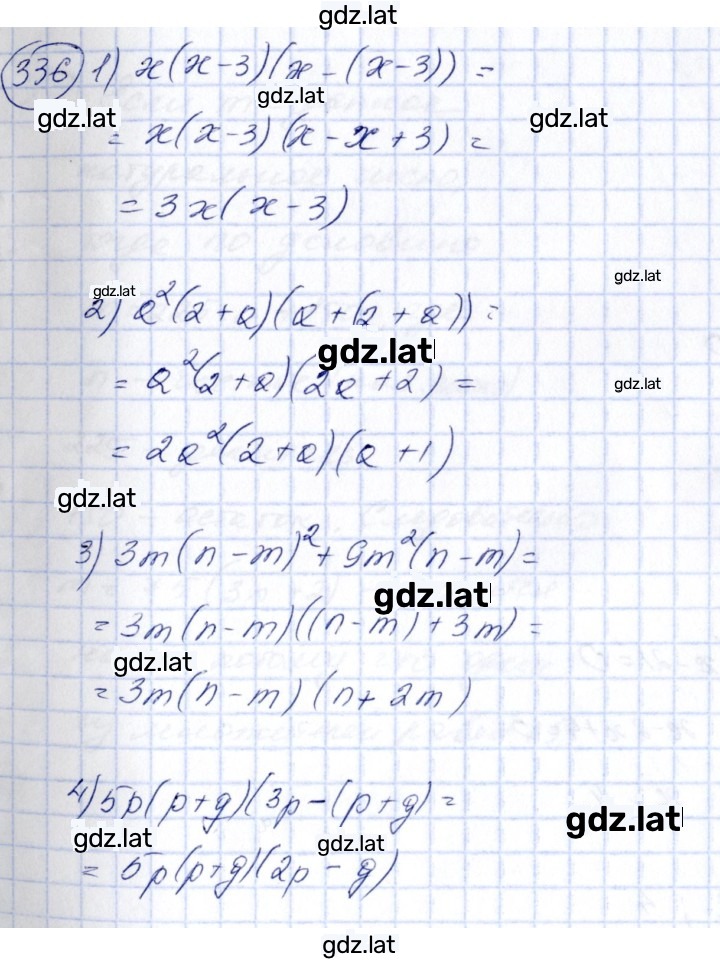 gdz.lat
336 1) x(x-3)(x-(x-3)) =
gdz.lat
gdz.lat
gdz.lat
= x(x-3)(x-x+3) =
= 3x(x-3)
gdz.lat
gdz.lat
2) a²(2+a)(a+(2+a)) =
gdz.lat
= a²(2+a)(2a+2) =
gdz.lat
= 2a²(2+a)(a+1)
gdz.lat
3) 3m(n-m)²+9m²(n-m) =
gdz.lat
= 3m(n-m)((n-m)+3m) =
gdz.lat
= 3m(n-m)(n+2m)
4) 5p(p+g)(3p-(p+g) =
gdz.lat
gdz.lat
gdz.lat
= 5p(p+g)(2p-g)
gdz.lat